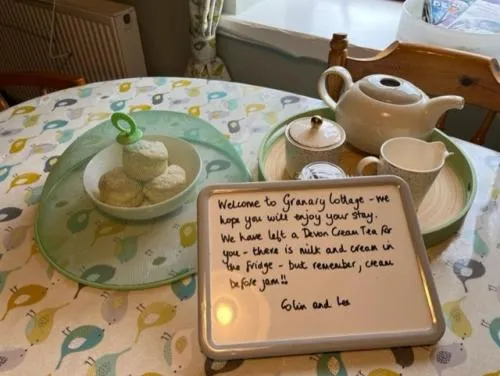 Welcome to Granary Cottage - we
hope you will enjoy your stay.
We have left a Devon Cream Tea for
you - there is milk and cream in
the fridge - but remember, cream
before jam!!
Colin and Les